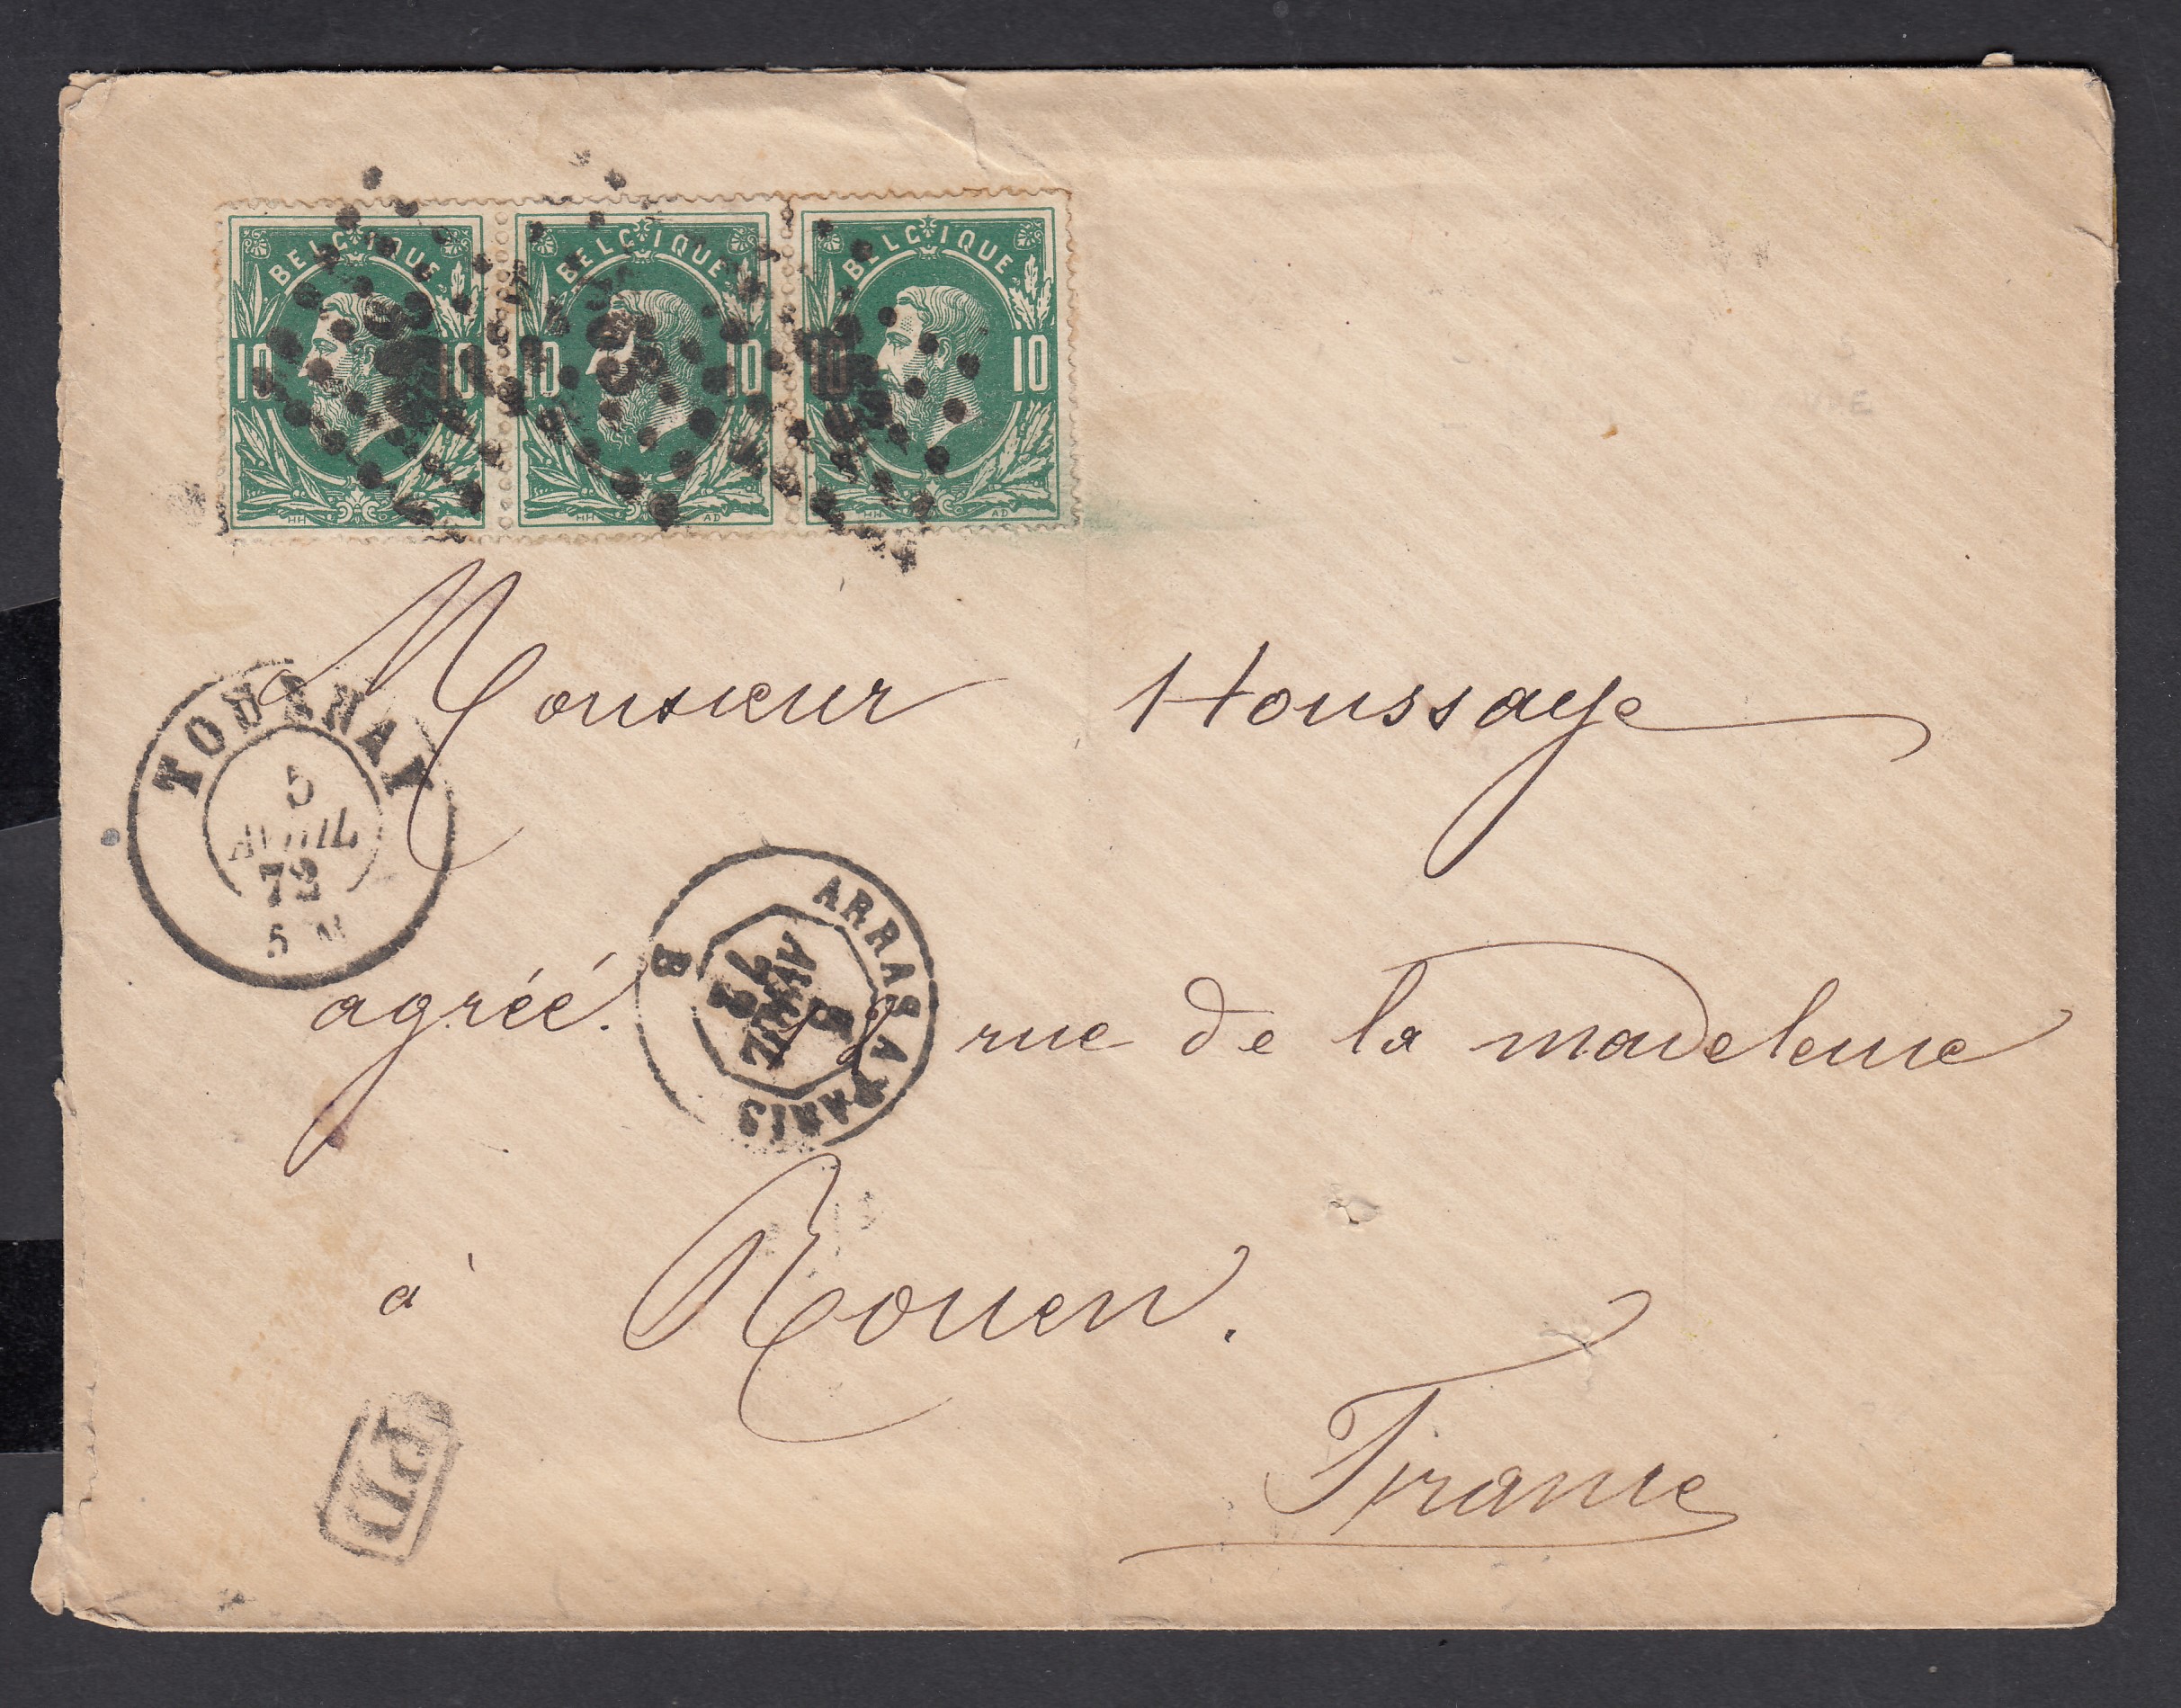 BELGIQUE BELGIQUE BELGIQUE
10 10 10 10 10 10
HH HH AD HH AD
Monsieur Houssaye
TOURNAY
5
AVRIL
72
5 M
ARRAS A PARIS
B
5
AVRIL
72
agréé. 12 rue de la madeleine
à Rouen.
France
PD